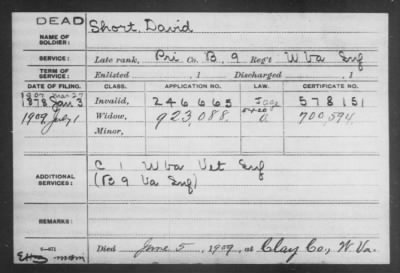 DEAD
NAME OF SOLDIER: Short, David
SERVICE: Late rank, Pri Co. B, 9 Reg't W Va Inf
TERM OF SERVICE: Enlisted , 1 Discharged , 1
DATE OF FILING. CLASS. APPLICATION NO. LAW. CERTIFICATE NO.
1878 Jan 3 Invalid, 246665 578151
1909 July 1 Widow, 923,088. 700,594
Minor,
ADDITIONAL SERVICES: C 1 W Va Vet Inf
(B 9 Va Inf)
REMARKS:
Died June 5, 1909, at Clay Co., W. Va.